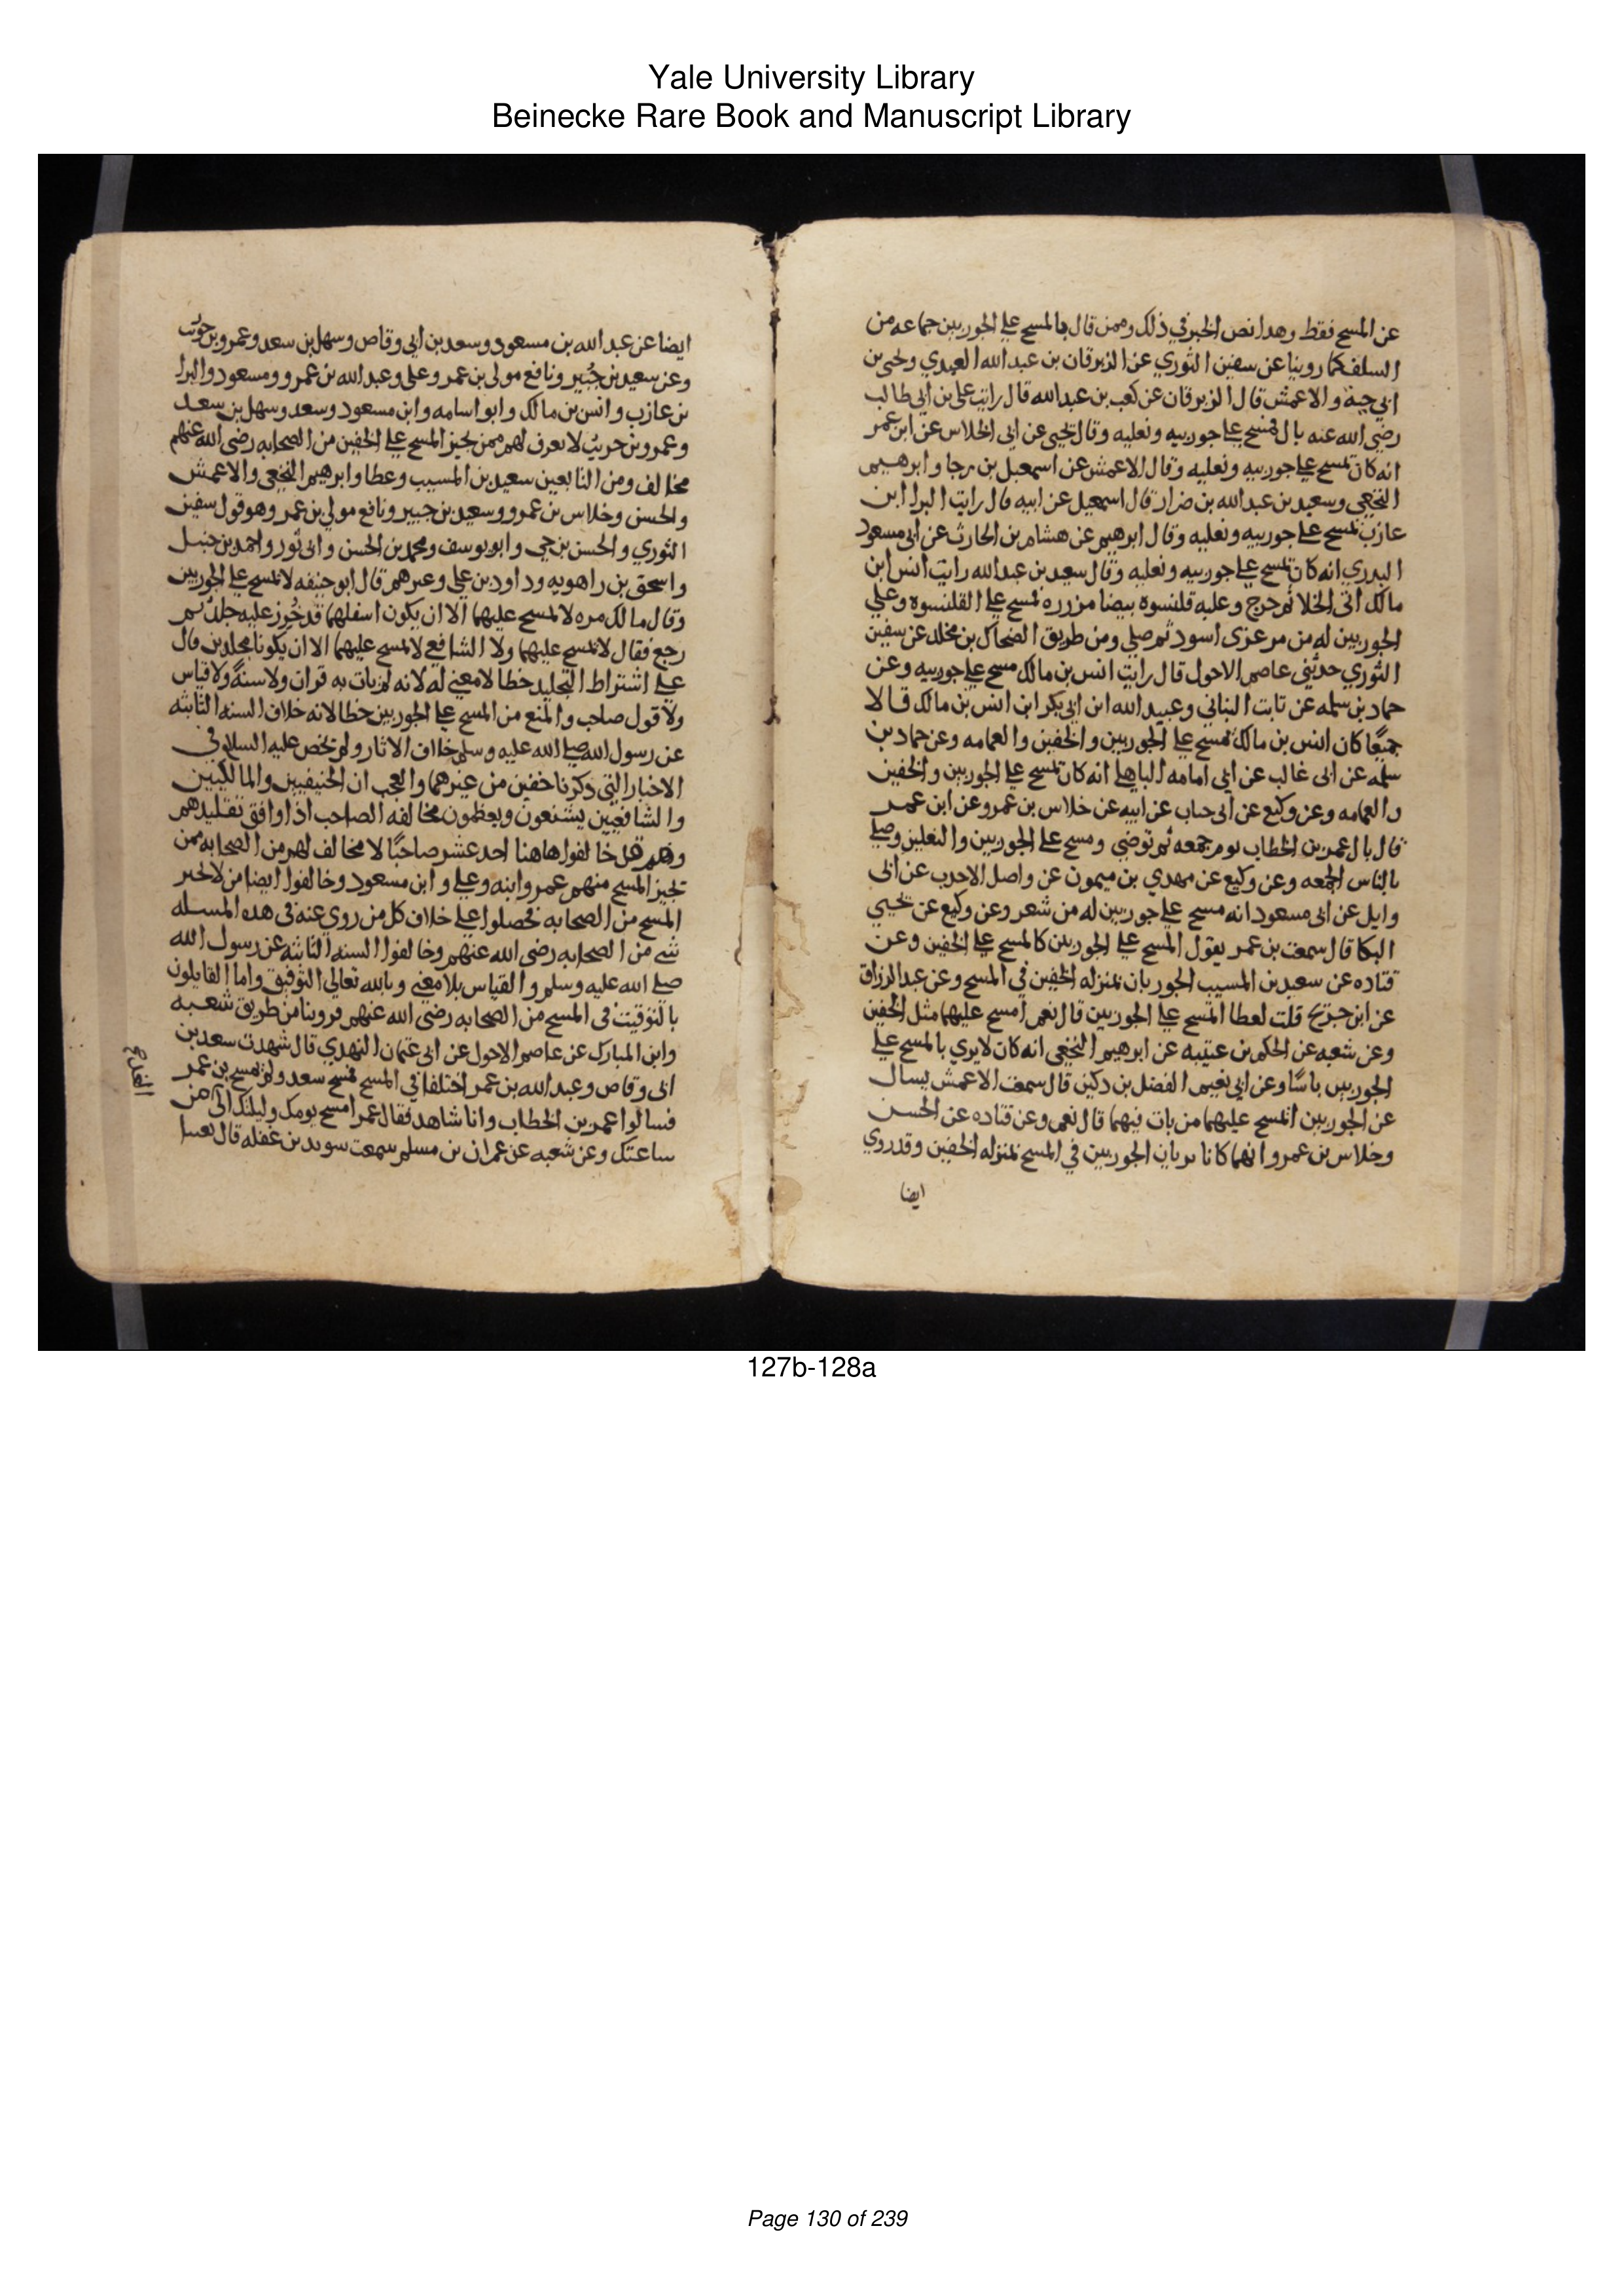 Yale University Library
Beinecke Rare Book and Manuscript Library
عن المسح فقط وهدا نص الخبر في ذلك وممن قال بالمسح على الجوربين جماعه من
السلف كما روينا عن سفين الثوري عن الزبرقان بن عبد الله العبدي ويحيى بن
ابي حية والاعمش قال الزبرقان عن كعب بن عبد الله قال رايت علي بن ابي طالب
رضي الله عنه بال فمسح على جوربيه ونعليه وقال يحيى عن ابي الخلاس عن ابن عمر
انه كان يمسح على جوربيه ونعليه وقال الاعمش عن اسمعيل بن رجا وابرهيم
النخعي وسعيد بن عبد الله بن ضرار قال اسمعيل عن ابيه قال رايت البرا ابن
عازب يمسح على جوربيه ونعليه وقال ابرهيم عن هشام بن الحارث عن ابي مسعود
البدري انه كان يمسح على جوربيه ونعليه وقال سعيد بن عبد الله رايت انس ابن
مالك اتى الخلا ثم خرج وعليه قلنسوه بيضا مزرره فمسح على القلنسوه وعلي
الجوربين له من مرعزى اسود ثم صلي ومن طريق الضحاك بن مخلد عن سفين
الثوري حدثني عاصم الاحول قال رايت انس بن مالك مسح على جوربيه وعن
حماد بن سلمه عن ثابت البناني وعبيد الله ابن ابي بكر ابن انس بن مالك قالا
جميعًا كان انس بن مالك يمسح على الجوربين والخفين والعمامه وعن حماد بن
سلمه عن ابى غالب عن ابي امامه الباهلي انه كان يمسح على الجوربين والخفين
والعمامه وعن وكيع عن ابى حباب عن ابيه عن خلاس بن عمرو عن ابن عمر
قال بال عمر بن الخطاب يوم جمعه ثم توضي ومسح على الجوربين والنعلين وصلي
بالناس الجمعه وعن وكيع عن مهدي بن ميمون عن واصل الاحدب عن ابى
وايل عن ابى مسعود انه مسح على جوربين له من شعر وعن وكيع عن يحيي
البكا قال سمعت بن عمر يقول المسح على الجوربين كالمسح على الخفين وعن
قتاده عن سعيد بن المسيب الجوربان بمنزله الخفين في المسح وعن عبد الرزاق
عن ابن جريج قلت لعطا المسح على الجوربين قال نعم امسح عليهما مثل الخفين
وعن شعبه عن الحكم بن عتيبه عن ابرهيم النخعي انه كان لا يري بالمسح على
الجوربين باسًا وعن ابي نعيم الفضل بن دكين قال سمعت الاعمش يسال
عن الجوربين ايمسح عليهما من بات فيهما قال نعم وعن قتاده عن الحسن
وخلاس بن عمرو انهما كانا يريان الجوربين في المسح بمنزله الخفين وقد روي
ايضا
ايضا عن عبد الله بن مسعود وسعد بن ابي وقاص وسهل بن سعد وعمرو بن حريث
وعن سعيد بن جُبير ونافع مولى بن عمر وعلي وعبد الله بن عمرو ومسعود والبرا
بن عازب وانس بن مالك وابو اسامه وابن مسعود وسعد وسهل بن سعد
وعمرو بن حريث لا يعرف لهم ممن يجيز المسح على الخفين من الصحابه رضي الله عنهم
مخالف ومن التابعين سعيد بن المسيب وعطا وابرهيم النخعي والاعمش
والحسن وخلاس بن عمرو وسعيد بن جبير ونافع مولي بن عمر وهو قول سفين
الثوري والحسن بن حي وابو يوسف ومحمد بن الحسن وابى ثور واحمد بن حنبل
واسحق بن راهويه وداود بن علي وغيرهم قال ابو حنيفه لا يمسح على الجوربين
وقال مالك مره لا يمسح عليهما الا ان يكون اسفلهما قد خُرز عليه جلد ثم
رجع فقال لا يمسح عليهما ولا الشافع لا يمسح عليهما الا ان يكونا مجلدين قال
علي اشتراط التجليد خطا لا معني له لانه لم يات به قران ولا سنةٌ ولا قياس
ولا قول صاحب والمنع من المسح على الجوربين خطا لانه خلاف السنه الثابته
عن رسول الله صلى الله عليه وسلم خلاف الاثار ولم يخص عليه السلام في
الاخبار التي ذكرنا خفين من غيرهما والعجب ان الحنيفيين والمالكيين
والشافعيين يشنعون ويعظمون مخالفه الصاحب اذا وافق تقليدهم
وهم قد خالفوا هاهنا احد عشر صاحبًا لا مخالف لهم من الصحابه ممن
يجيز المسح منهم عمر وابنه وعلي وابن مسعود وخالفوا ايضا من لا يجيز
المسح من الصحابه فحصلوا على خلاف كل من روي عنه في هده المسله
شي من الصحابه رضي الله عنهم وخالفوا السنه الثابثه عن رسول الله
صلى الله عليه وسلم والقياس بلا معني وبالله تعالي التوفيق واما القايلون
بالتوقيت في المسح من الصحابه رضي الله عنهم فروينا من طريق شعبه
وابن المبارك عن عاصم الاحول عن ابى عثمان النهدي قال شهدت سعد بن
ابى وقاص وعبد الله بن عمر اختلفا في المسح فمسح سعد ولم يمسح بن عمر
فسالوا عمر بن الخطاب وانا شاهد فقال عمر امسح يومك وليلتك الى من
ساعتك وعن شعبه عن عمران بن مسلم سمعت سويد بن غفله قال بعثنا
127b-128a
Page 130 of 239